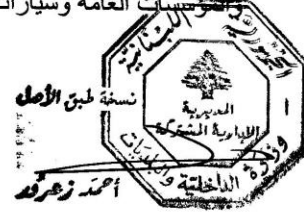 والمؤسسات العامة وسيارات
الجمهورية اللبنانية
نسخة طبق الأصل
المديرية
الإدارية المشتركة
وزارة الداخلية والبلديات
أحمد زعرور